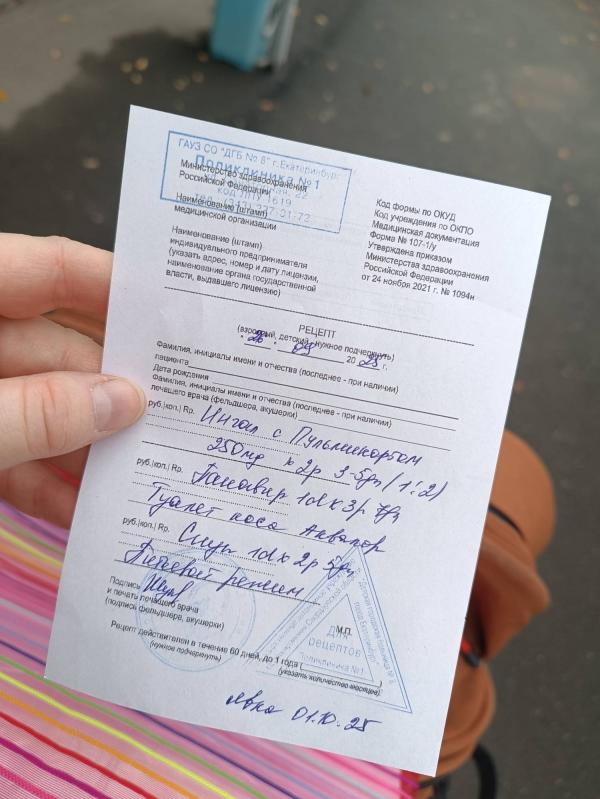 ГАУЗ СО "ДГБ № 8" г.Екатеринбург
Поликлиника № 1
22
код ЛПУ 1619
Министерство здравоохранения
Российской Федерации
Наименование (штамп)
медицинской организации
Наименование (штамп)
индивидуального предпринимателя
(указать адрес, номер и дату лицензии,
наименование органа государственной
власти, выдавшего лицензию)
Код формы по ОКУД
Код учреждения по ОКПО
Медицинская документация
Форма № 107-1/у
Утверждена приказом
Министерства здравоохранения
Российской Федерации
от 24 ноября 2021 г. № 1094н
РЕЦЕПТ
(взрослый, детский - нужное подчеркнуть)
26. 09 2025 г.
Фамилия, инициалы имени и отчества (последнее - при наличии)
пациента
Дата рождения
Фамилия, инициалы имени и отчества (последнее - при наличии)
лечащего врача (фельдшера, акушерки)
руб.|коп.| Rp. Ингал с Пульмикортом
250мg х 2р 3-5дн (1:2)
руб.|коп.| Rp. 1d х 3р
Туалет носа Аквалор
руб.|коп.| Rp. 1d х 2р 5дн
Питьевой режим
Подпись
и печать лечащего врача
(подпись фельдшера, акушерки)
М.П.
Рецепт действителен в течение 60 дней, до 1 года (
(нужное подчеркнуть)
(указать количество месяцев)
Для
рецептов
Поликлиника №1
явка 01.10.25